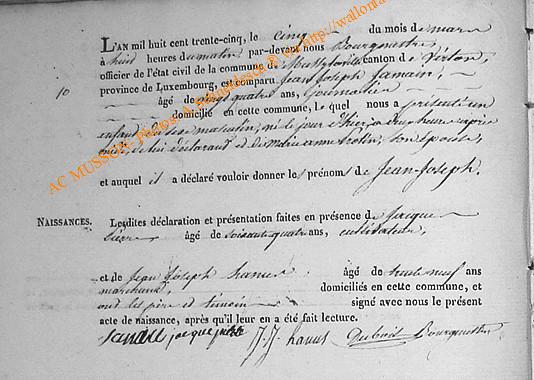 L'AN mil huit cent trente-cinq, le cinq du mois de mars
à huit heures du matin par-devant nous Bourgmestre,
officier de l'état civil de la commune de canton de Virton,
province de Luxembourg, est comparu Jean Joseph Jamain,
10
âgé de vingt quatre ans, journalier
domicilié en cette commune, lequel nous a présenté un
enfant du sexe masculin, né le jour d'hier, à onze heures
de lui déclarant et de Marie anne son épouse,
et auquel il a déclaré vouloir donner les prénoms de Jean-Joseph.
NAISSANCES. Lesdites déclaration et présentation faites en présence de Jacque
Pierre âgé de soixante quatre ans, cultivateur,
et de Jean Joseph hanus âgé de trente neuf ans
marchand, domiciliés en cette commune, et
ont les père et témoins signé avec nous le présent
acte de naissance, après qu'il leur en a été fait lecture.
jacque J. J. hanus Bourgmestre
AC MUSSON - Photos: A. ® via http://wallonia